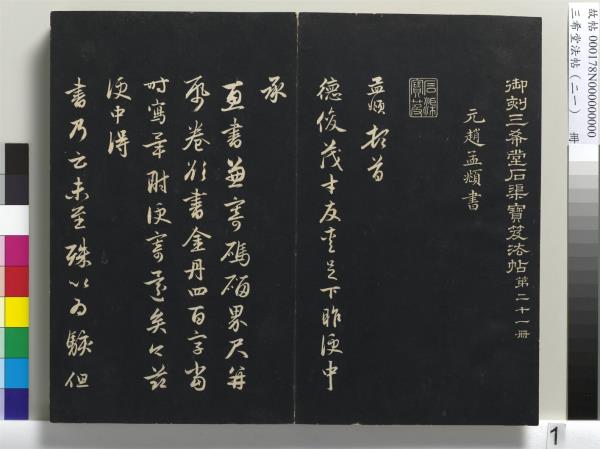 御刻三希堂石渠寶笈法帖第二十一冊
元趙孟頫書
石渠寶笈
孟頫頓首
德俊茂才友愛足下昨便中
承
惠書兼寄碼碯界尺并
紙卷欲書金丹四百字當
時寫畢附便寄還矣今茲
便中得
書乃云未至殊以為駭但
故帖 000178N000000000
三希堂法帖(二一)
1